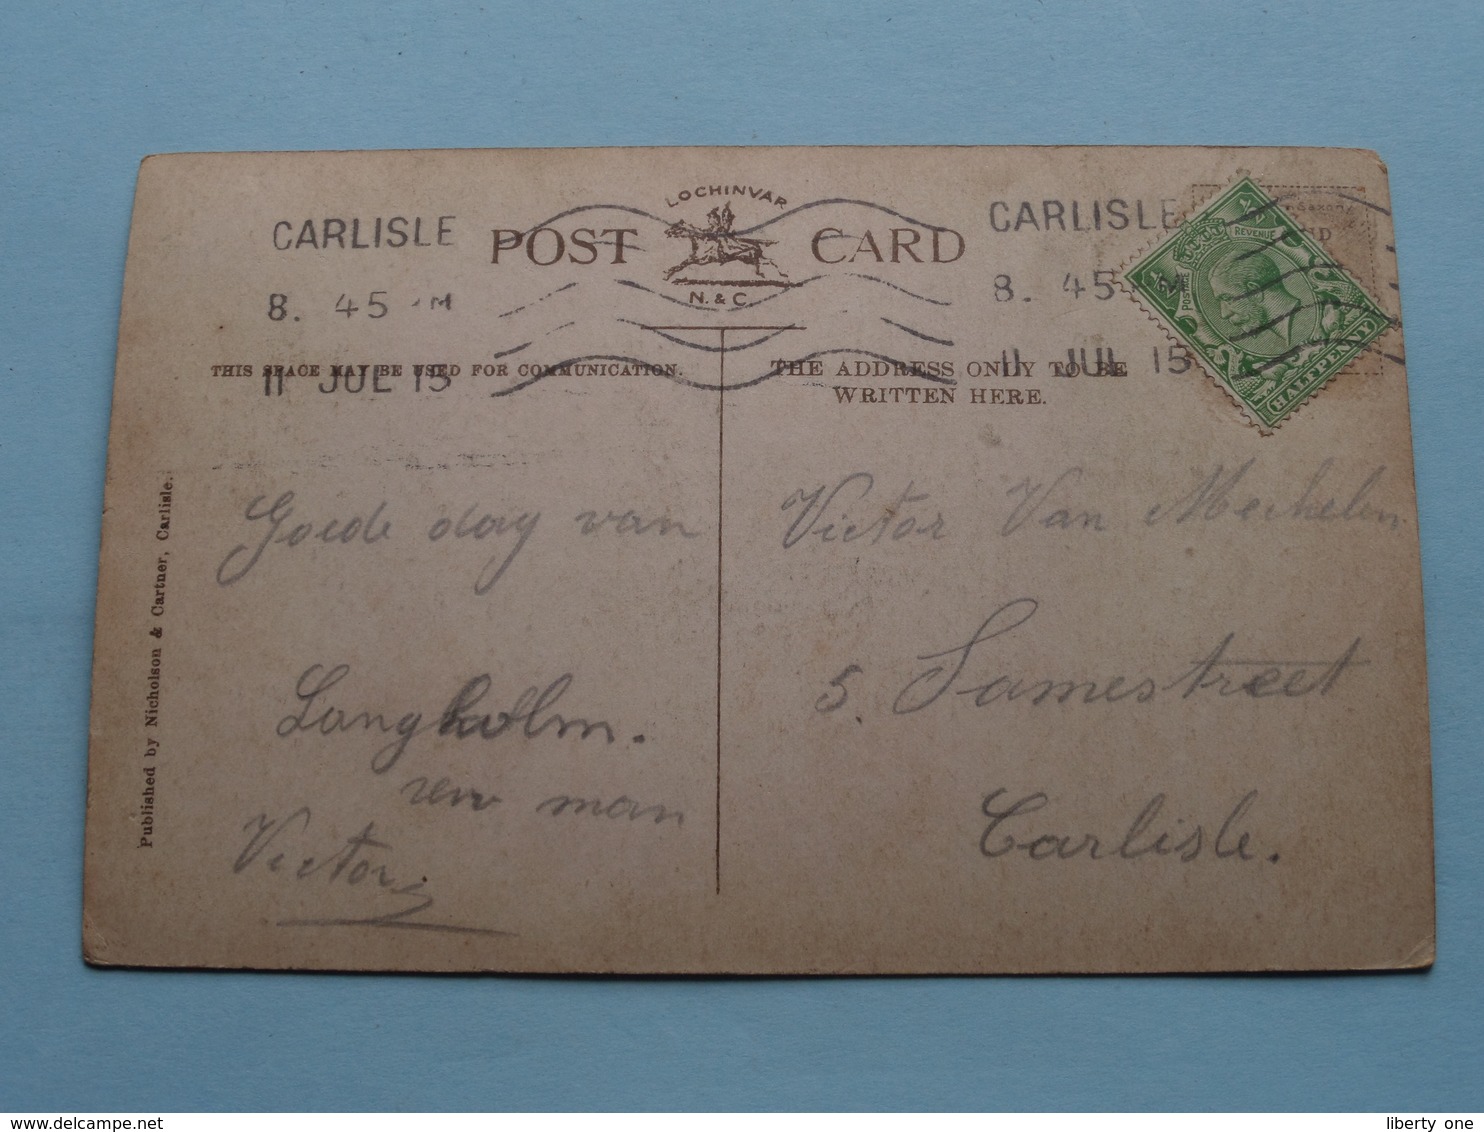 LOCHINVAR
POST CARD
N. & C
CARLISLE
8. 45 M
11 JUL 15
CARLISLE
8. 45 M
11 JUL 15
½ᴰ
REVENUE
POSTAGE
½ᴰ
HALFPENNY
THIS SPACE MAY BE USED FOR COMMUNICATION.
THE ADDRESS ONLY TO BE
WRITTEN HERE.
Published by Nicholson & Cartner, Carlisle.
Goede dag van
Langholm.
man
Victor
Victor Van Mechelen
5. Jamestreet
Carlisle.
delcampe.net
liberty one